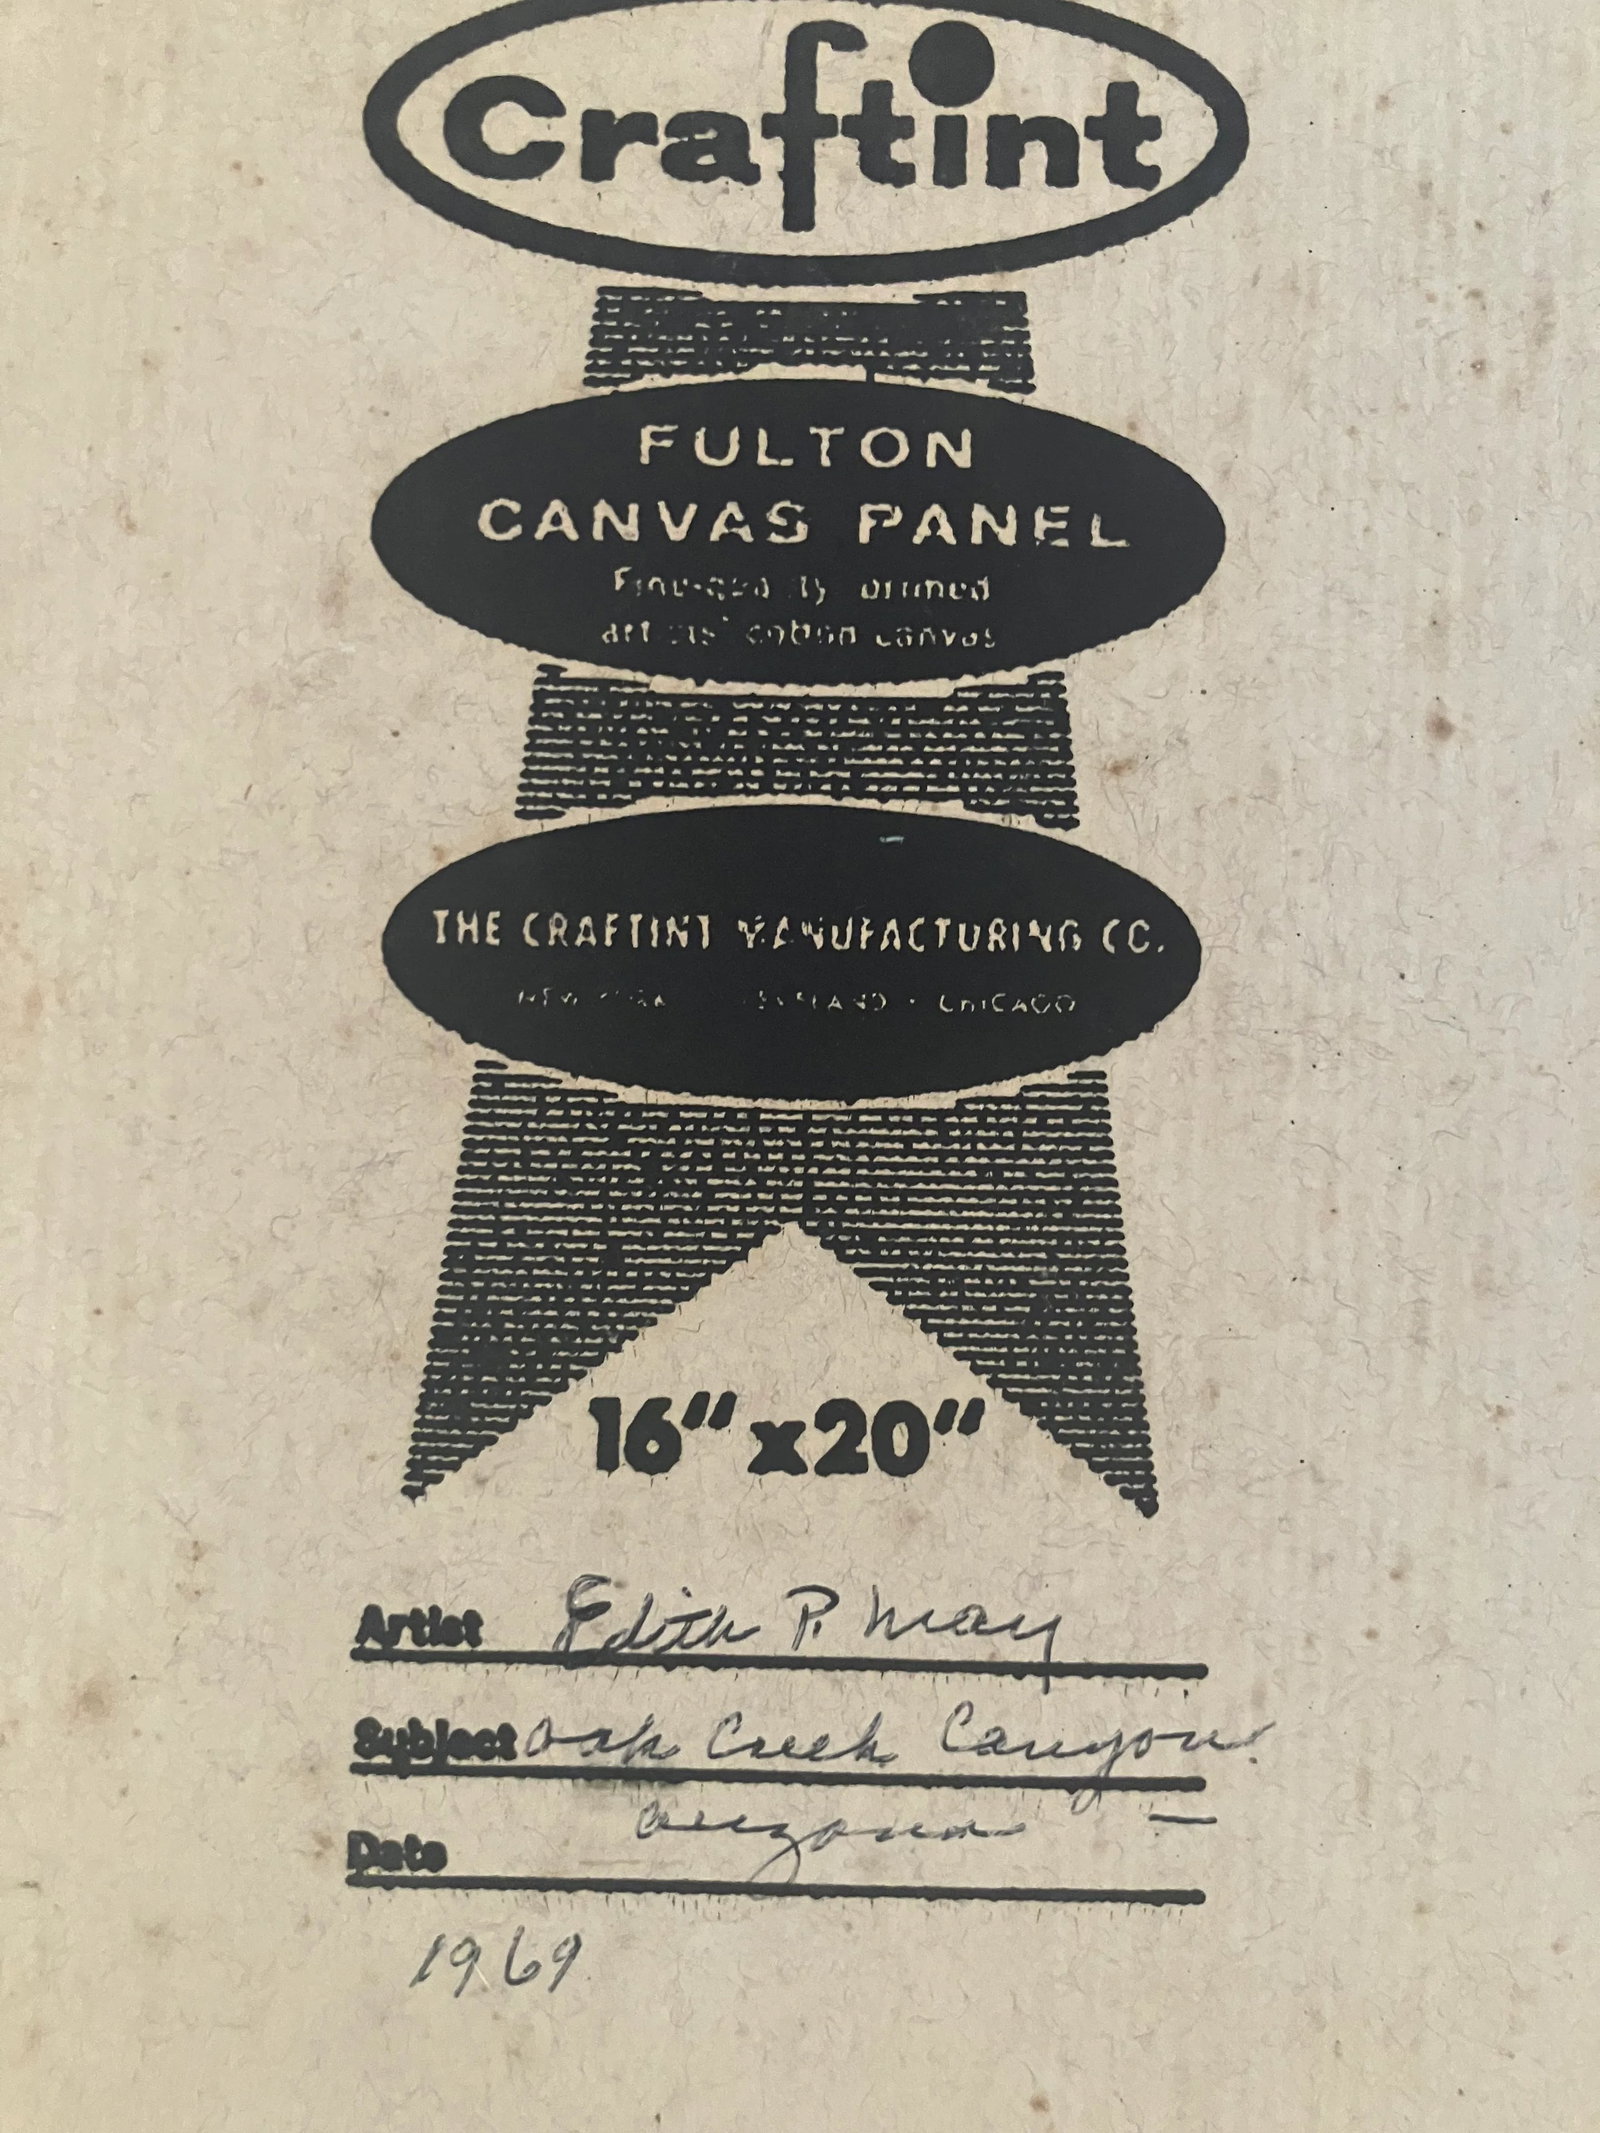 Craftint
FULTON
CANVAS PANEL
Fine-quality primed
artists' cotton canvas
THE CRAFTINT MANUFACTURING CO.
NEW YORK CLEVELAND • CHICAGO
16" x 20"
Artist Edith P. May
Subject Oak Creek Canyon
Arizona —
Date
1969